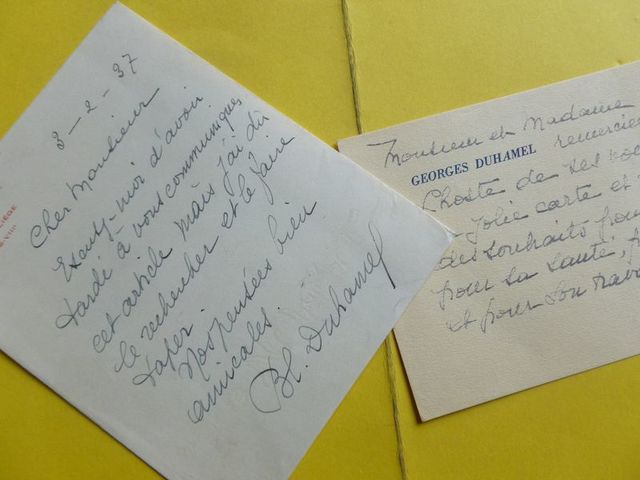 3-2-37
Cher Monsieur
Excusez-moi d'avoir
tardé à vous communiquer
cet article mais j'ai dû
le rechercher et le faire
taper.
Nos pensées bien
amicales.
Bl. Duhamel
LIÈGE
VIII
Monsieur et Madame
GEORGES DUHAMEL
remercie
Choste de ses
jolie carte et
des souhaits pou
pour sa santé,
et pour son trava